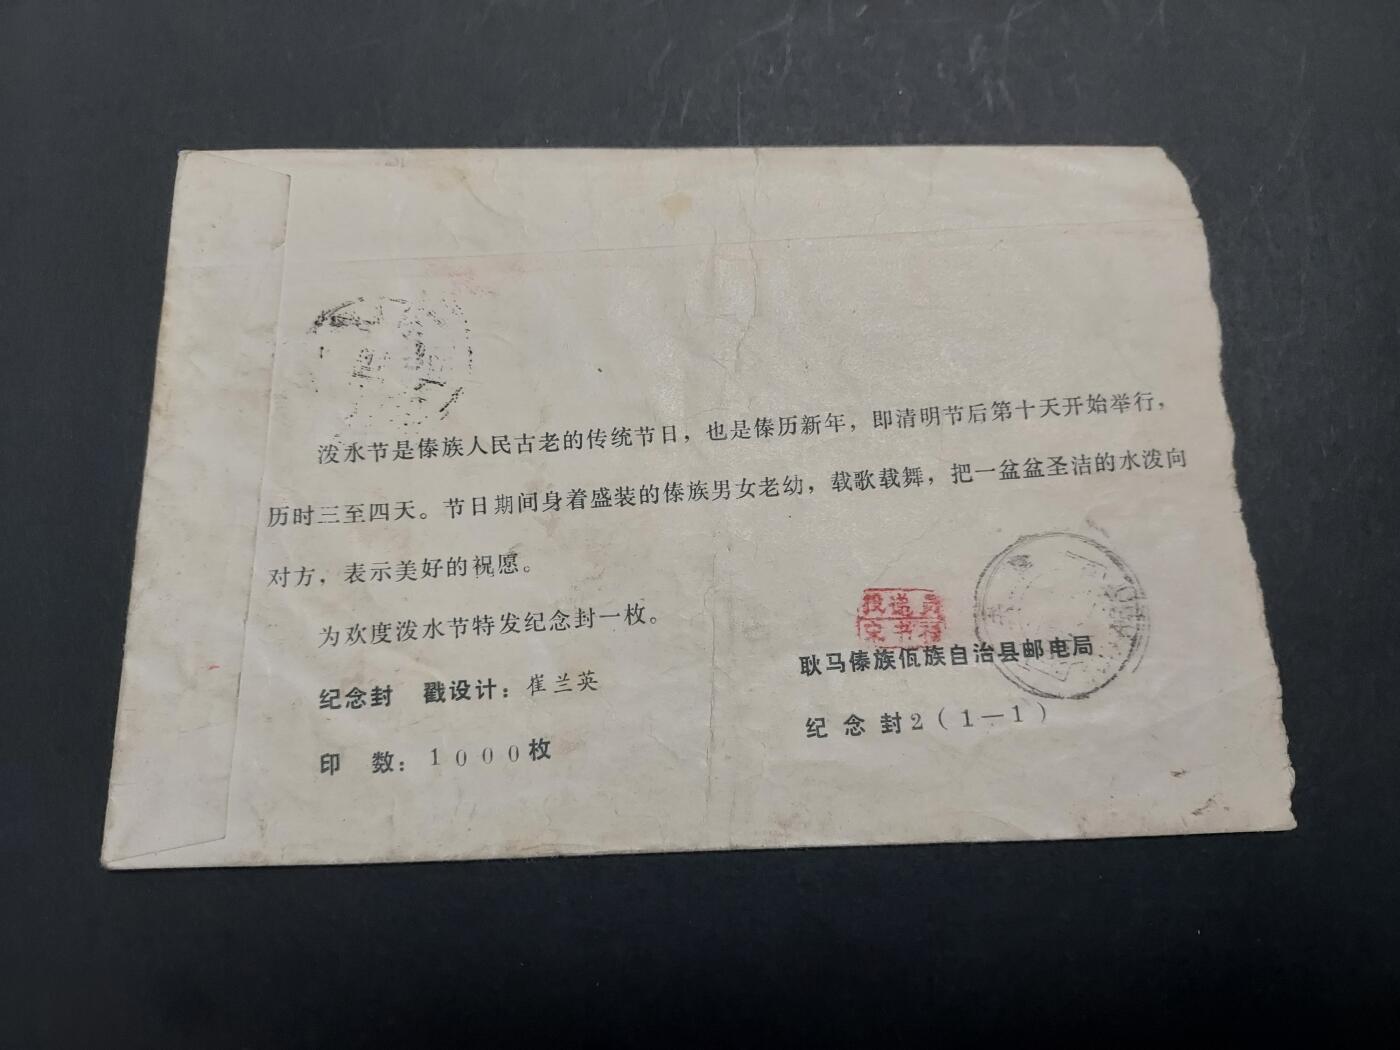 泼水节是傣族人民古老的传统节日，也是傣历新年，即清明节后第十天开始举行，
历时三至四天。节日期间身着盛装的傣族男女老幼，载歌载舞，把一盆盆圣洁的水泼向
对方，表示美好的祝愿。
为欢度泼水节特发纪念封一枚。
投递员
耿马傣族佤族自治县邮电局
纪念封 戳设计：崔兰英
纪念封2（1－1）
印 数：1000枚